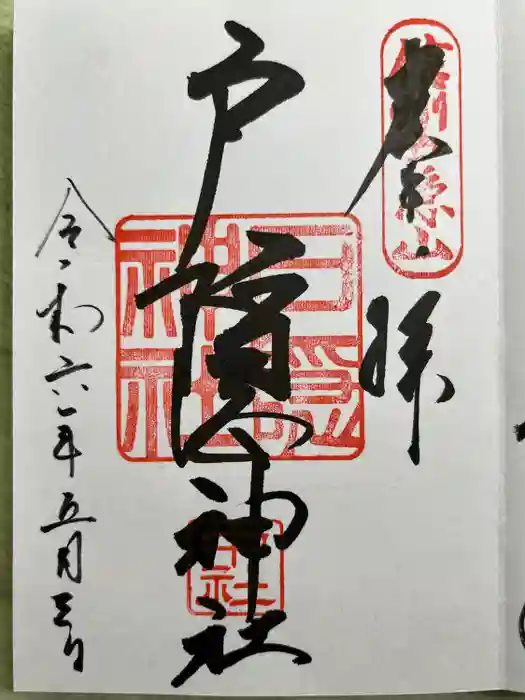 信州戸隠山
奉拝
戸隠神社
戸隠神社
令和六年五月三日